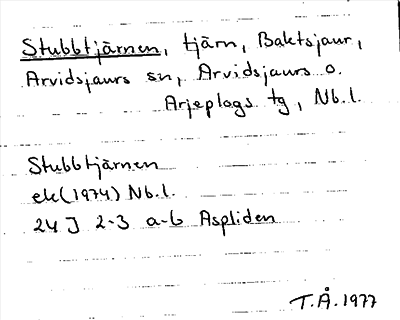 Stubbtjärnen, tjärn, Baktsjaur,
Arvidsjaurs sn, Arvidsjaurs o.
Arjeplogs tg, Nb.l.
Stubbtjärnen
ek(1974) Nb.l.
24 J 2-3 a-b Aspliden
T.Å.1977